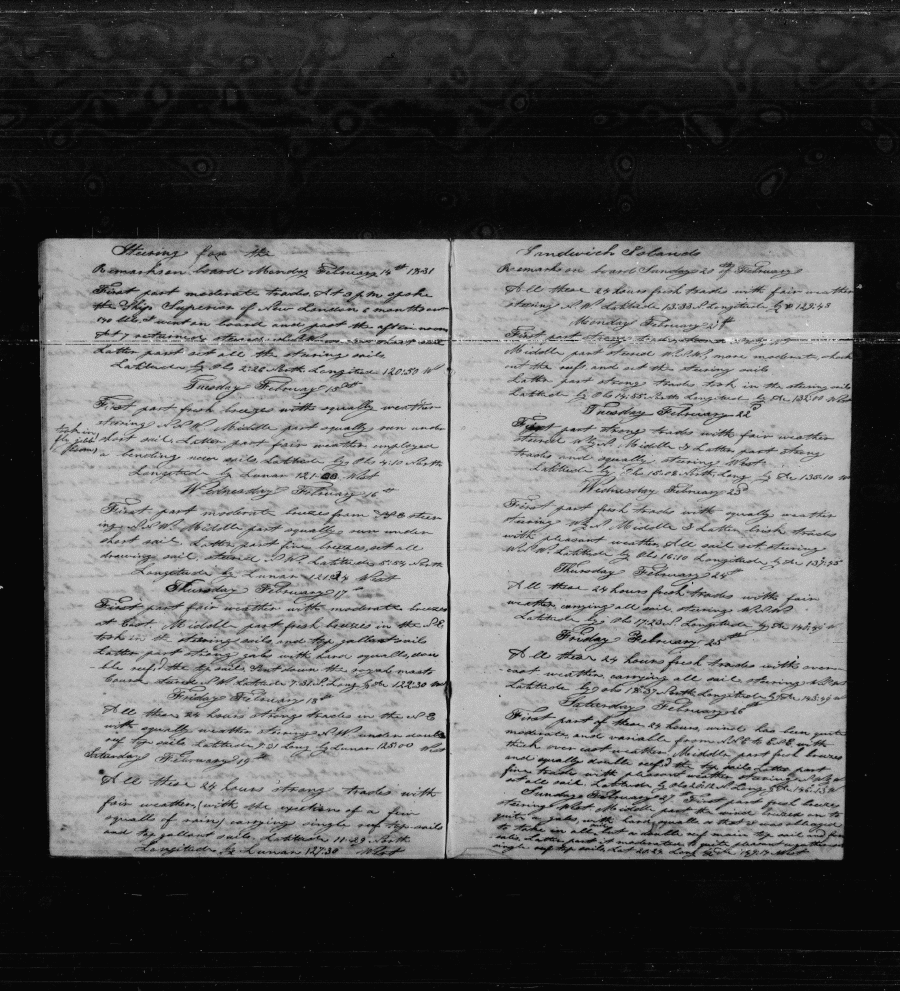 Steering for the
Remarks on board Monday February 14th 1831
First part moderate trades. At 3 pm spoke
the Ship Superior of New London 8 months out
I went on board and past the afternoon
At 7 returned
Latter part set all the stearing sails
Lattitude by Obs 2:22 North Longitude 120:50 W
Tuesday February 15th
First part fresh breezes with squally weather
stearing N.N.W. Middle part squally run under
took in
fly jibb
short sail. Latter part fair weather employed
a bending new sails Lattitude by Obs 4:10 North
Longitude by Lunar West
Wednesday February 16th
First part moderate breezes from steer
ing N.N.W. Middle part squally run under
short sail. Latter part fine breezes, set all
drawing sail steard N.W. Lattitude 5:54 North
Longitude by Lunar West
Thursday February 17th
First part fair weather with moderate breezes
at East. Middle part fresh breezes in the N.E.
took in the stearing sails and top gallant sails
Latter part strong gales with hard squalls, dou
ble reef'd the top sails sent down the royal masts
Course steard N.W Lattitude 7:31 N. Long by 122:30 West
Friday February 18th
All these 24 hours strong trades in the N.E
with squally weather stearing N.W. under double
reef top sails Lattitude 9:31 Long by Lunar 125:00 West
Saturday February 19th
All these 24 hours strong trades with
fair weather, (with the exception of a few
squalls of rain) carrying single reef top sails
and top gallant sails. Lattitude 11:29 North
Longitude by Lunar 127:30 West
Sandwich Islands
Remarks on board Sunday 20th of February
All these 24 hours fresh trades with fair weather
stearing N.W. Lattitude 13:33 N Longitude by 129:43
Monday February 21st
First part strong
Middle part steard W.N.W. more moderate, shook
out the reefs and set the stearing sails
Latter part strong trades took in the stearing sails
Lattitude by Obs 14:55 North Longitude by 132:00 West
Tuesday February 22d
First part strong trades with fair weather
steard W by N. Middle & Latter part strong
trades and squally, stearing West
Lattitude by Obs 15:08 North Long by 135:10 W
Wednesday February 23d
First part fresh trades with squally weather
stearing W by N Middle & Latter fresh trades
with pleasant weather. All sail set stearing
W.N.W Lattitude by Obs 16:10 Longitude by 137:45
Thursday February 24th
All these 24 hours fresh trades with fair
weather, carrying all sail stearing W.N.W
Lattitude by Obs 17:23 N. Longitude by
Friday February 25th
All these 24 hours fresh trades with over
cast weather carrying all sail stearing
Lattitude by Obs 18:37 North Longitude by
Saturday February 26th
First part of these 24 hours, wind has been quite
moderate, and variable from with
thick over cast weather, Middle part fresh breezes
and squally double reef'd the top sails, latter part
fine trades with pleasant weather stearing
set all sail. Lattitude by Obs Long
Sunday February 27 First part fresh breeze
stearing West Middle part the wind
quite a gale, with
to take in all but a double reef main top sail and fore
sail, Latter part it moderated & quite pleasant weather
single reef top sails, Lat 20:22 Long West